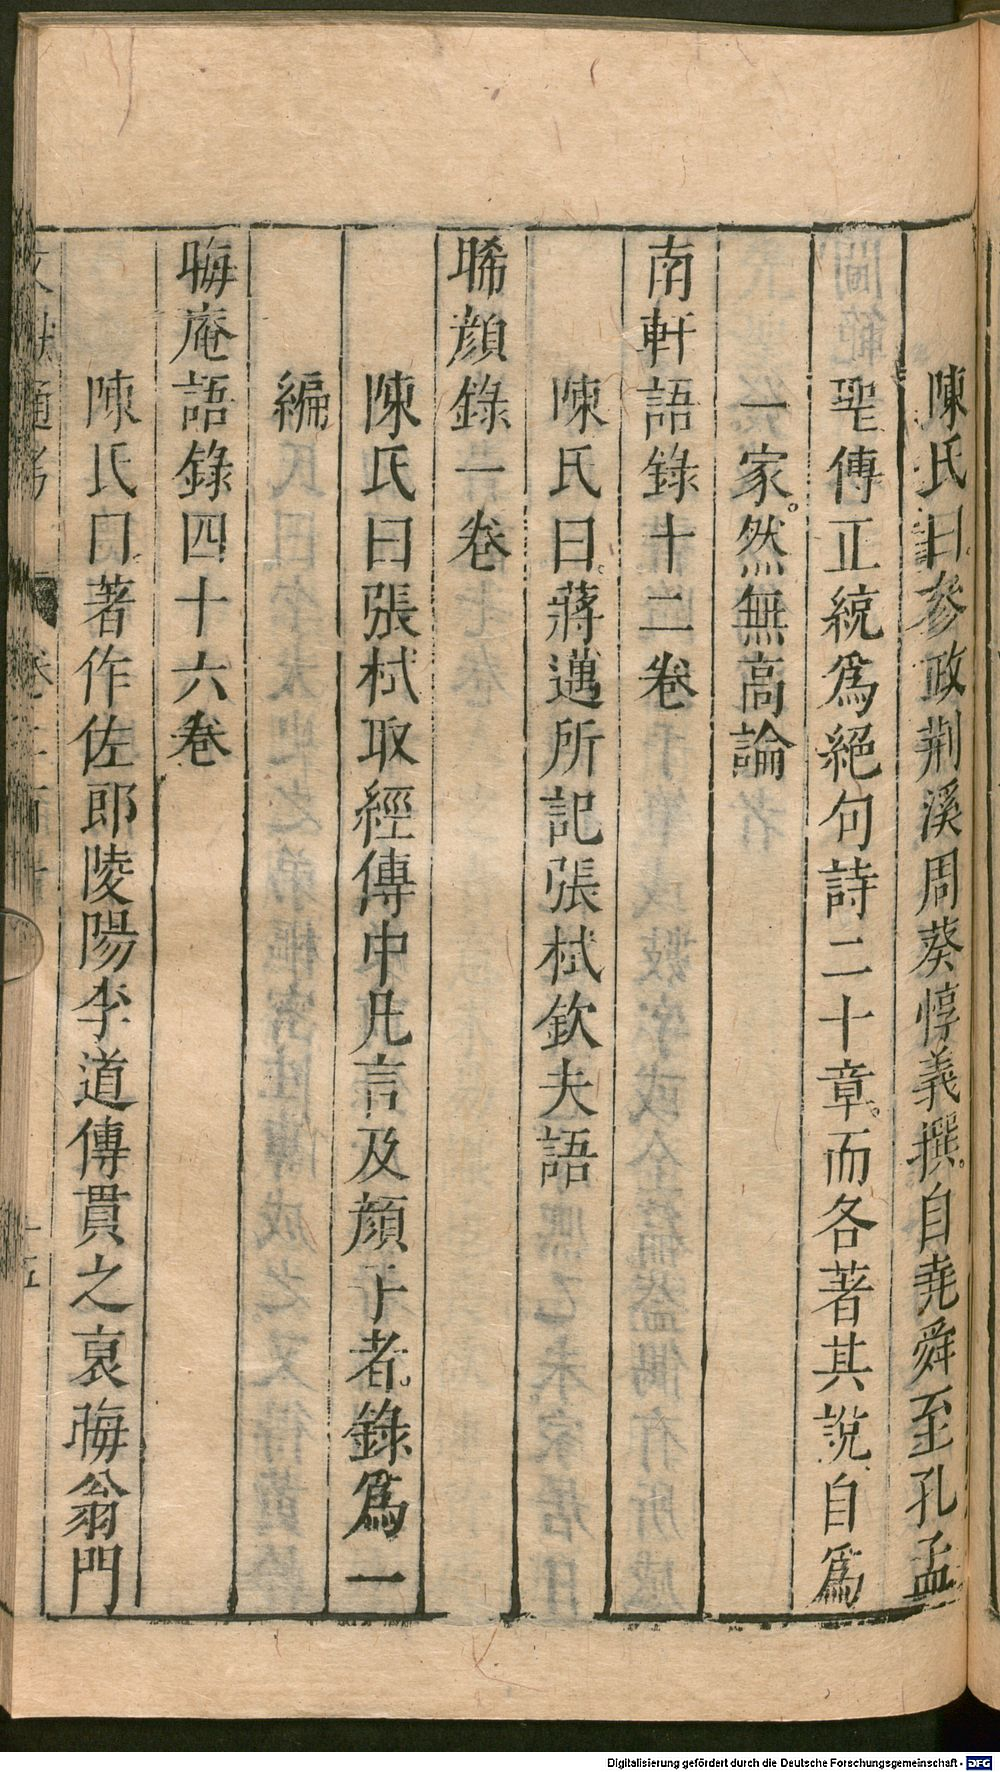 陳氏曰參政荆溪周葵惇義撰。自堯舜至孔孟
聖傳正統爲絕句詩二十章。而各著其說自爲
一家。然無高論
南軒語錄十二卷
陳氏曰。蔣邁所記張栻欽夫語
晞顔錄一卷
陳氏曰張栻取經傳中凡言及顔子者。錄爲一
編
晦庵語錄四十六卷
陳氏曰著作佐郎陵陽李道傳貫之裒晦翁門
Digitalisierung gefördert durch die Deutsche Forschungsgemeinschaft - DFG